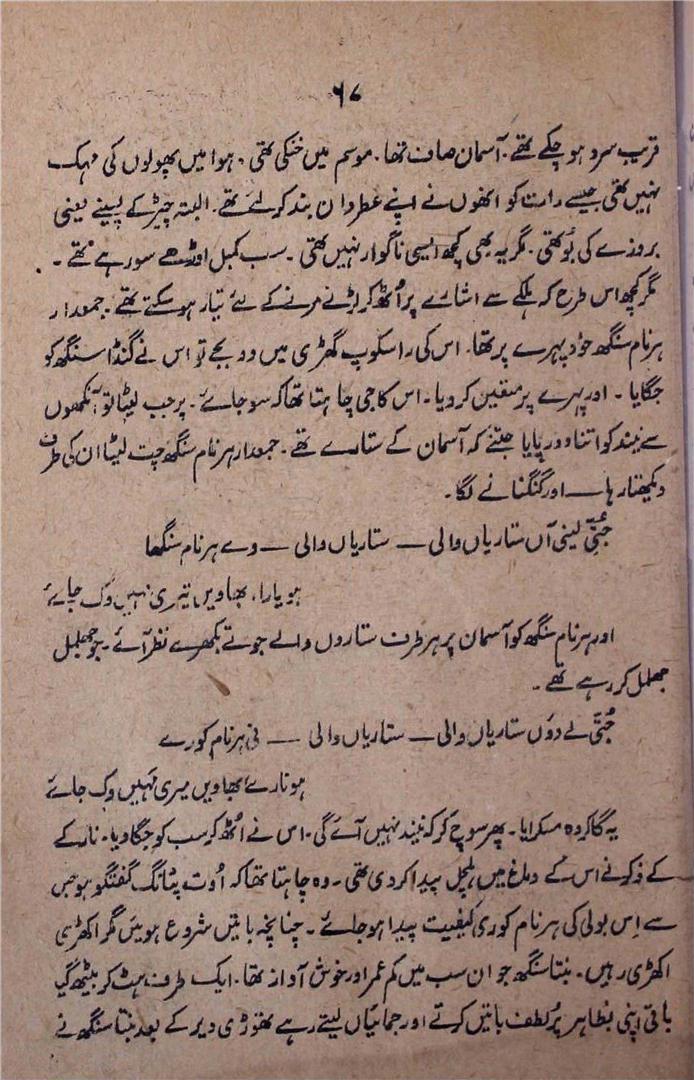 ۶۷
قریب سرد ہو چکے تھے۔ آسمان صاف تھا۔ موسم میں خنکی تھی۔ ہوا میں پھولوں کی مہک
نہیں تھی جیسے رات کو انھوں نے اپنے عطردان بند کر لئے تھے۔ البتہ چیڑ کے پسینے یعنی
بروزے کی بُو تھی۔ مگر یہ بھی کچھ ایسی ناگوار نہیں تھی۔ سب کمبل اوڑھے سو رہے تھے۔
مگر کچھ اس طرح کہ ہلکے سے اشارے پر اُٹھ کر لڑنے مرنے کے لئے تیار ہو سکتے تھے۔ جمعدار
ہرنام سنگھ خود پہرے پر تھا۔ اس کی راسکوپ گھڑی میں دو بجے تو اس نے گنڈا سنگھ کو
جگایا۔ اور پہرے پر متعین کر دیا۔ اس کا جی چاہتا تھا کہ سو جائے۔ پر جب لیٹا تو آنکھوں
سے نیند کو اتنا دور پایا جتنے کہ آسمان کے ستارے تھے۔ جمعدار ہرنام سنگھ چت لیٹا ان کی طرف
دیکھتا رہا — اور گنگنانے لگا۔
جُتّی لینی آں ستاریاں والی — ستاریاں والی — وے ہرنام سنگھا
ہو یارا، بھاویں تیری نہیں وک جائے
اور ہرنام سنگھ کو آسمان پر ہر طرف ستاروں والے جوتے بکھرے نظر آئے۔ جو جھلمل
جھلمل کر رہے تھے۔
جُتّی لے دوں ستاریاں والی — ستاریاں والی — نی ہرنام کورے
ہو نارے بھاویں میری نہیں وک جائے
یہ گا کر وہ مسکرایا۔ پھر سوچ کر کہ نیند نہیں آئے گی۔ اس نے اُٹھ کر سب کو جگا دیا۔ نار کے
کے ذکر نے اس کے دماغ میں ہلچل پیدا کر دی تھی۔ وہ چاہتا تھا کہ اوٹ پٹانگ گفتگو ہو جس
سے اِس بولی کی ہرنام کوری کیفیت پیدا ہو جائے۔ چنانچہ باتیں شروع ہوئیں مگر اکھڑی
اکھڑی رہیں۔ بنتا سنگھ جو ان سب میں کم عمر اور خوش آواز تھا۔ ایک طرف ہٹ کر بیٹھ گیا
باقی اپنی بظاہر پُر لطف باتیں کرتے اور جمائیاں لیتے رہے تھوڑی دیر کے بعد بنتا سنگھ نے